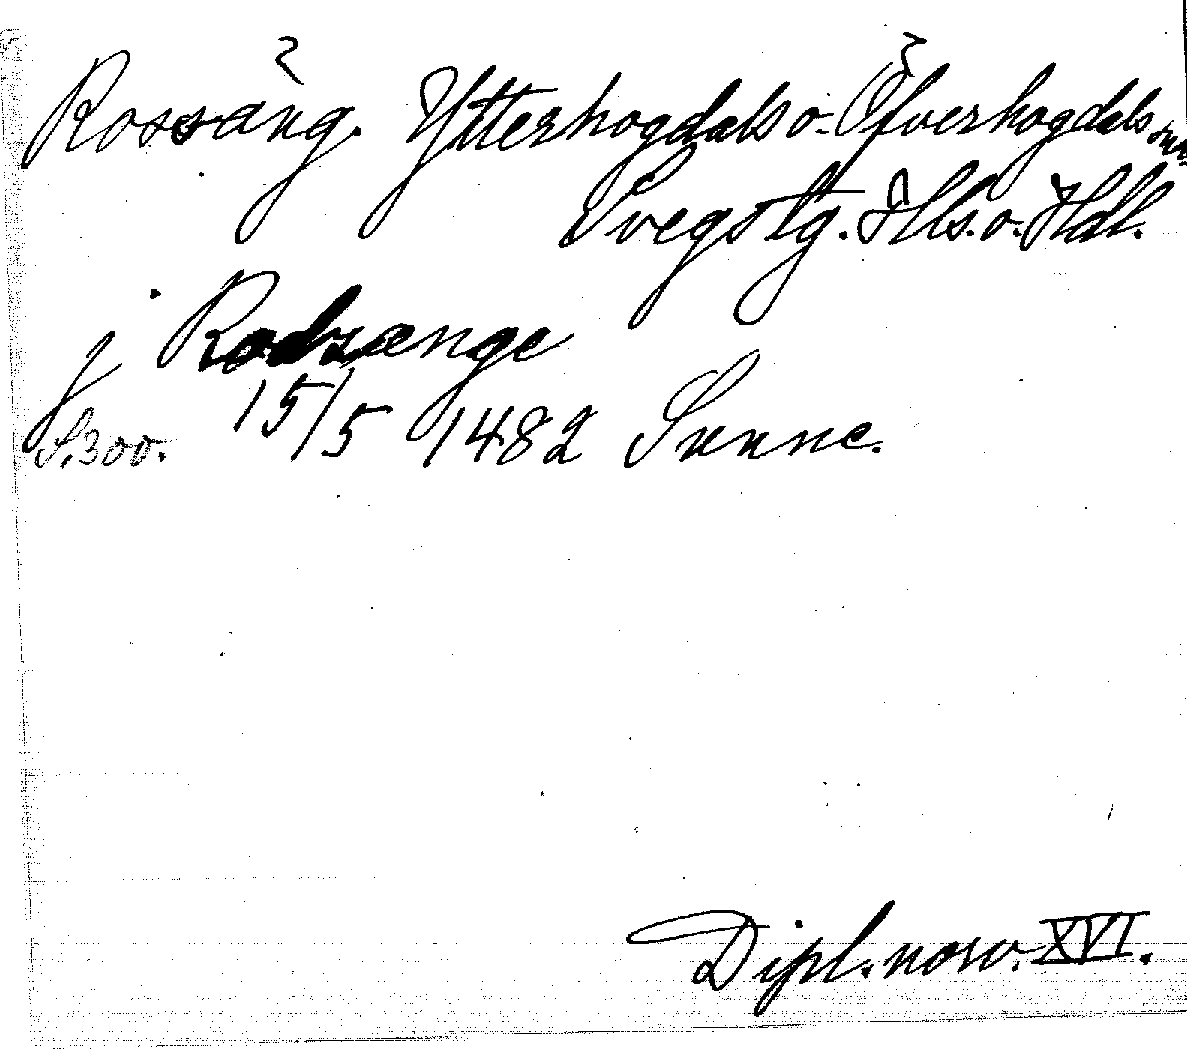 Rossäng. Ytterhogdals o. Öfverhogdals snr.
Svegs tg. Hls. o. Hdl.
j Rodsænge
S. 300. 15/5 1482 Sunne.
Dipl. norv. XVI.